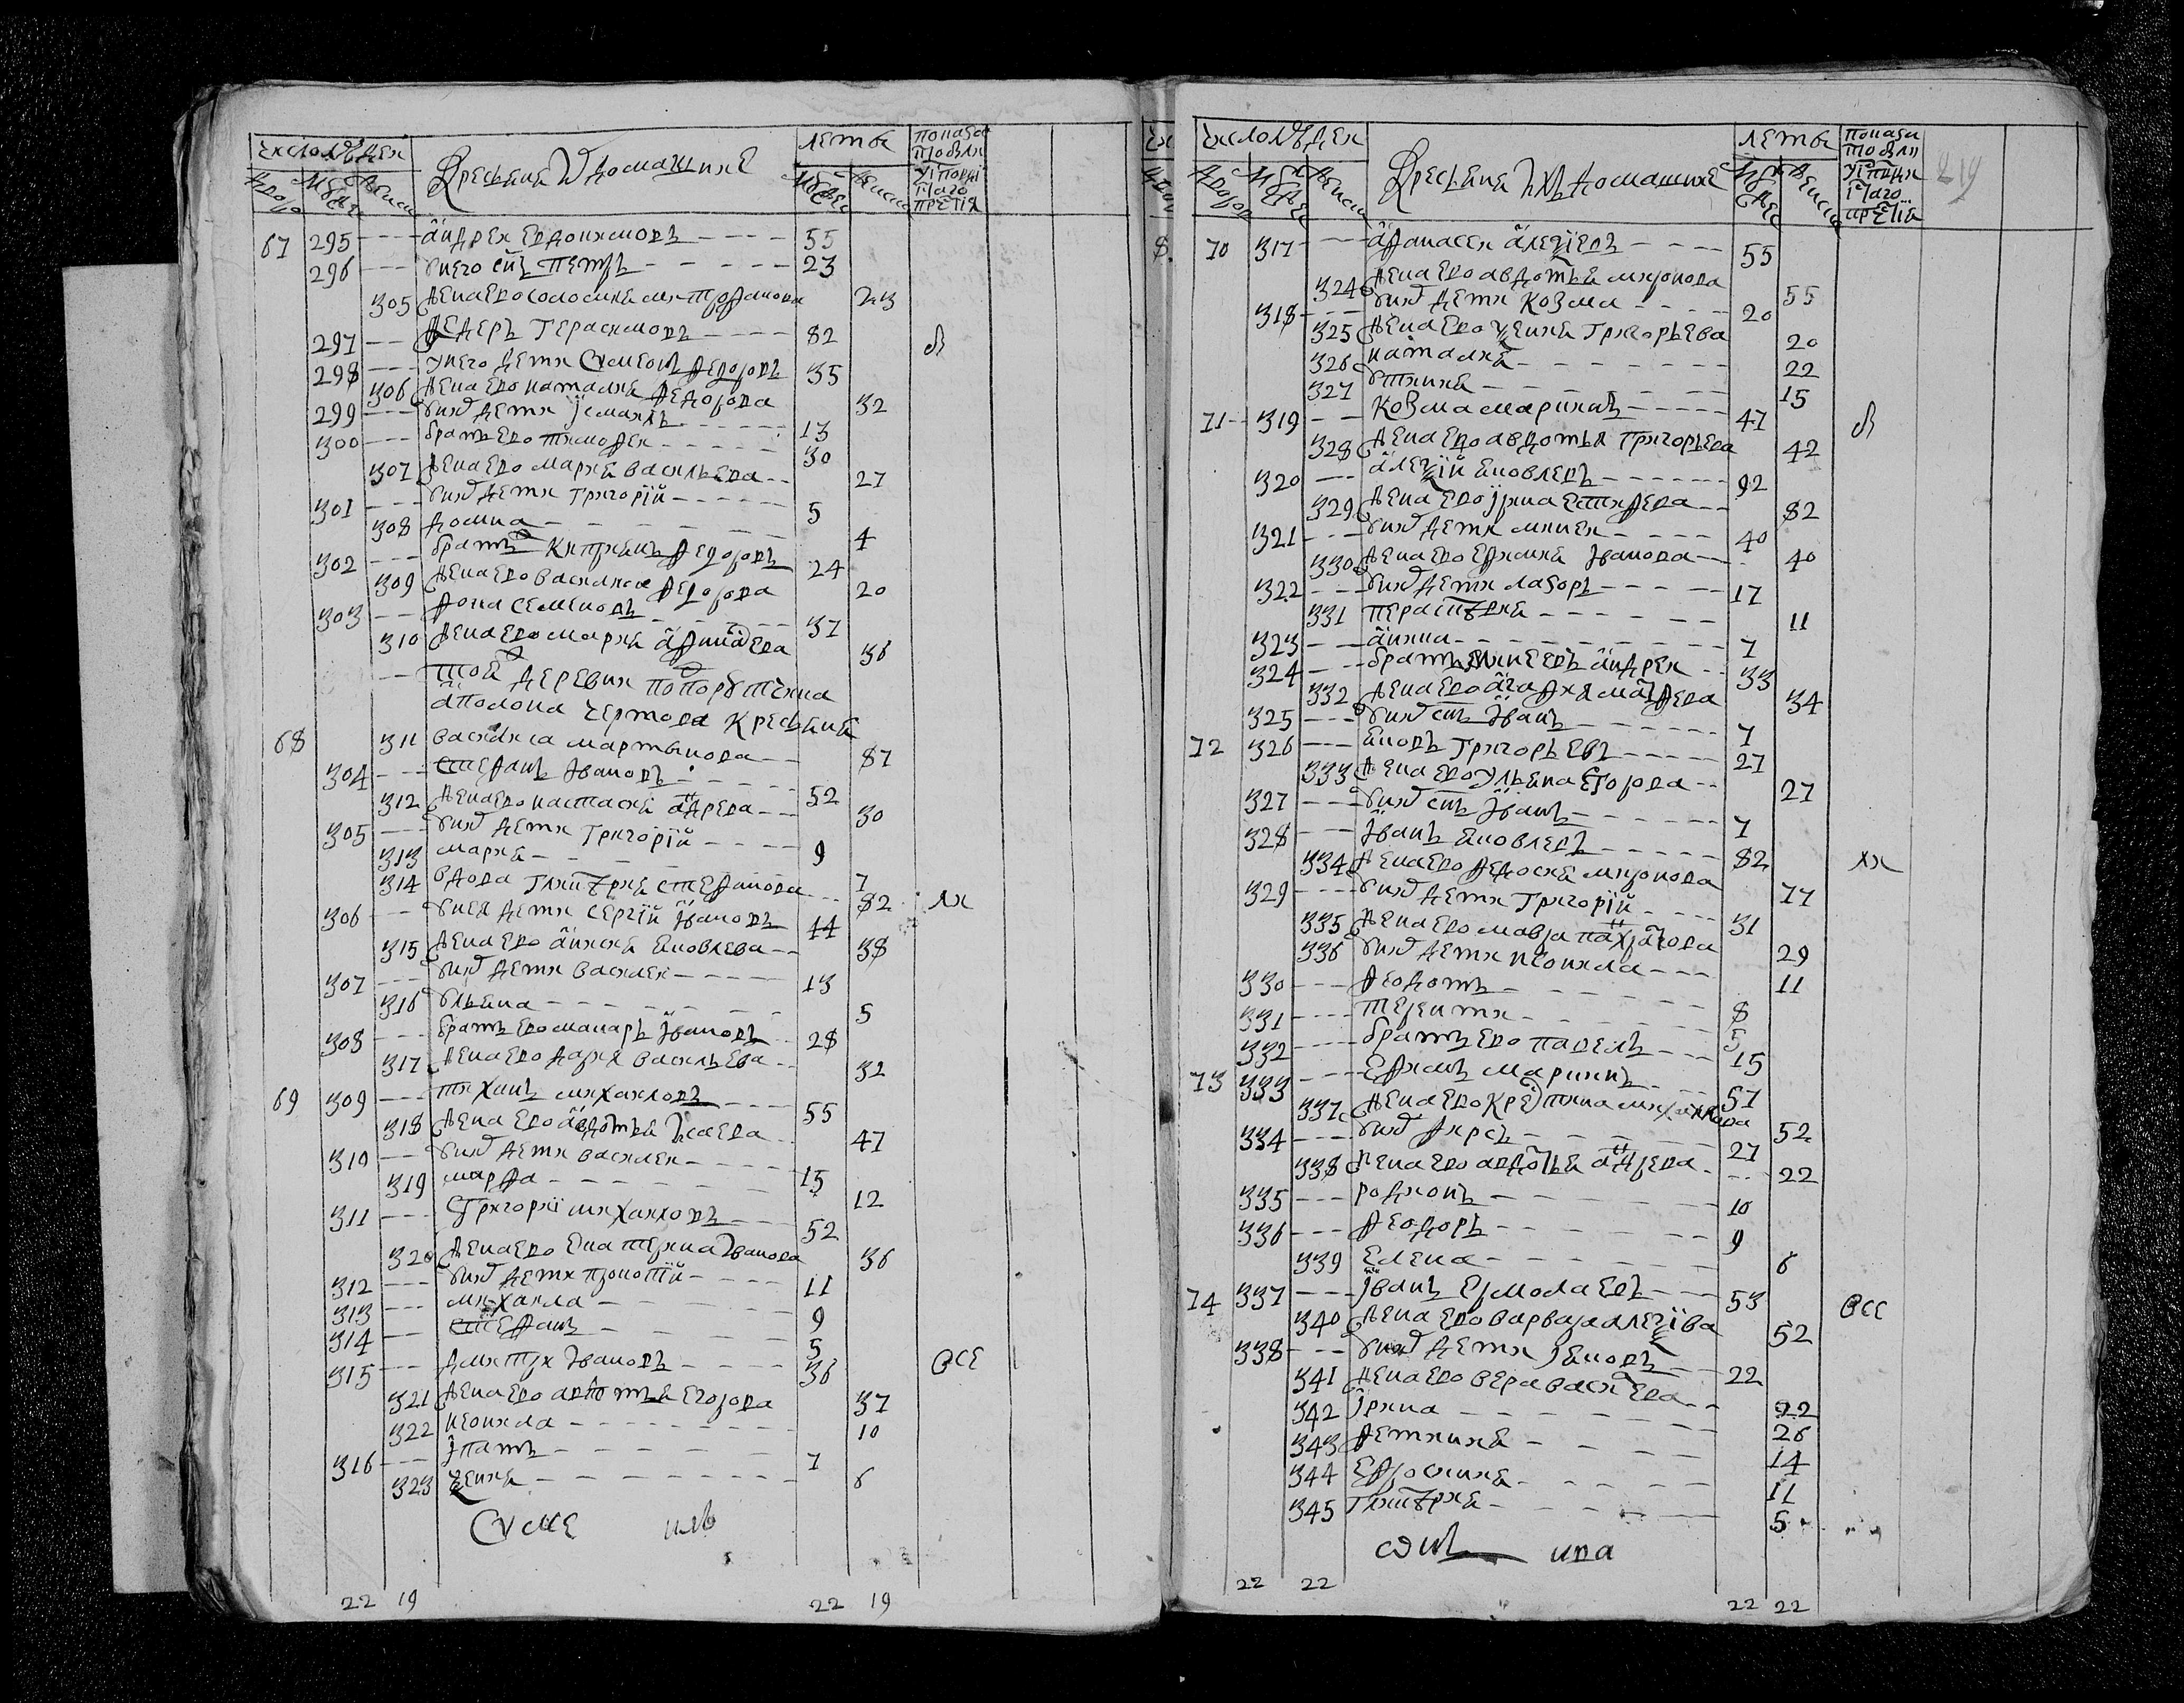 число людей
Крестьяне и домашние
лета
показа
дворов
мужес
женск
67 295 --- андреи евдокимовъ --- 55
296 --- у него снъ петръ --- 23
305 жена его соломия митрофанова 23
297 --- федеръ герасимовъ --- 82
298 --- у него дети симеонъ федоровъ 35
306 жена его наталия федорова 32
299 --- у них дети исмаилъ --- 13
300 --- братъ его тимофеи --- 30
307 жена его мария васильева -- 27
301 --- у них дети григорїй --- 5
308 домна --- 4
302 --- братъ киприянъ федоровъ 24
309 жена его василиса федорова 20
303 --- фока семеновъ --- 37
310 жена его мария 36
--- тоя деревни порутчика
аполона чертова крестьяня
68 311 василиса мартынова -- 87
304 --- стефанъ ивановъ --- 52
312 жена его настасия адрева -- 30
305 --- у них дети григорїй --- 9
313 мария --- 7
314 вдова гликерия стефанова 82
306 --- у нея дети сергїй ивановъ 44
315 жена его анисия яковлева -- 38
307 --- у них дети василеи --- 13
316 ульяна --- 5
308 --- братъ его макаръ ивановъ 28
317 жена его дария васильева -- 32
69 309 --- тиханъ михаиловъ --- 55
318 жена его авдотья исаева 47
310 --- у них дети василеи --- 15
319 марфа --- 12
311 --- григории михаиловъ --- 52
320 жена его екатерина иванова 36
312 --- у них дети прокопїй --- 11
313 --- михаила --- 9
314 --- стефанъ --- 5
315 --- дмитри ивановъ --- 36 все
321 жена его авдотья егорова 37
322 неонила --- 10
316 --- ипатъ --- 7
323 ксения --- 6
22 19 22 19
число людеи
Крестьяня и их домашние
лета
показа
219
70 317 --- афанасеи алексїевъ --- 55
324 жена его авдотья миронова 55
318 --- у них дети козма --- 20
325 жена его ксения григорьева 20
326 наталия --- 22
327 устиния --- 15
71 319 --- козма маркинъ --- 47
328 жена его авдотья григорьева 42
320 --- алексїй яковлевъ --- 92
329 жена его ирина естифеева -- 82
321 --- у них дети минеи --- 40
330 жена его ефимия иванова -- 40
322 --- у них дети лазорь --- 17
331 пераскевия --- 11
323 --- аника --- 7
324 --- братъ минеевъ андреи 33
332 жена его агафия матфеева 34
325 --- у них снъ иванъ --- 7
72 326 --- яковъ григорьевъ --- 27
333 жена его ульяна егорова -- 27
327 --- у них снъ иванъ --- 7
328 --- иванъ яковлевъ --- 82
334 жена его федосия миронова 77
329 --- у них дети григорїй --- 31
335 жена его мавра 29
336 у них дети неонила --- 11
330 --- федотъ --- 8
331 --- терентии --- 5
332 --- братъ его павелъ --- 15
73 333 --- ефимъ маркинъ 57
337 жена его кристина михаилова 52
334 --- у них фирсъ --- 27
338 жена его авдотья адрева -- 22
335 --- родионъ --- 10
336 --- феодоръ --- 9
339 елена --- 6
74 337 --- иванъ ермолаевъ --- 53 все
340 жена его варвара алексїева 52
338 --- у них дети яковъ --- 22
341 жена его вера васиева -- 22
342 ирина --- 26
343 фетиния --- 14
344 ефросиния --- 11
345 гликерия --- 5
22 22 22 22